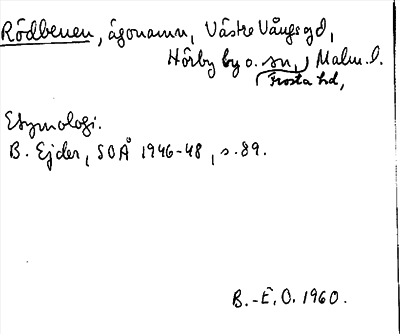 Rödbenen, ägonamn, Västra Vångs gd,
Hörby by o. sn, Malm. l.
Frosta hd,
Etymologi.
B. Ejder, SOÅ 1946-48, s. 89.
B.-E. O. 1960.